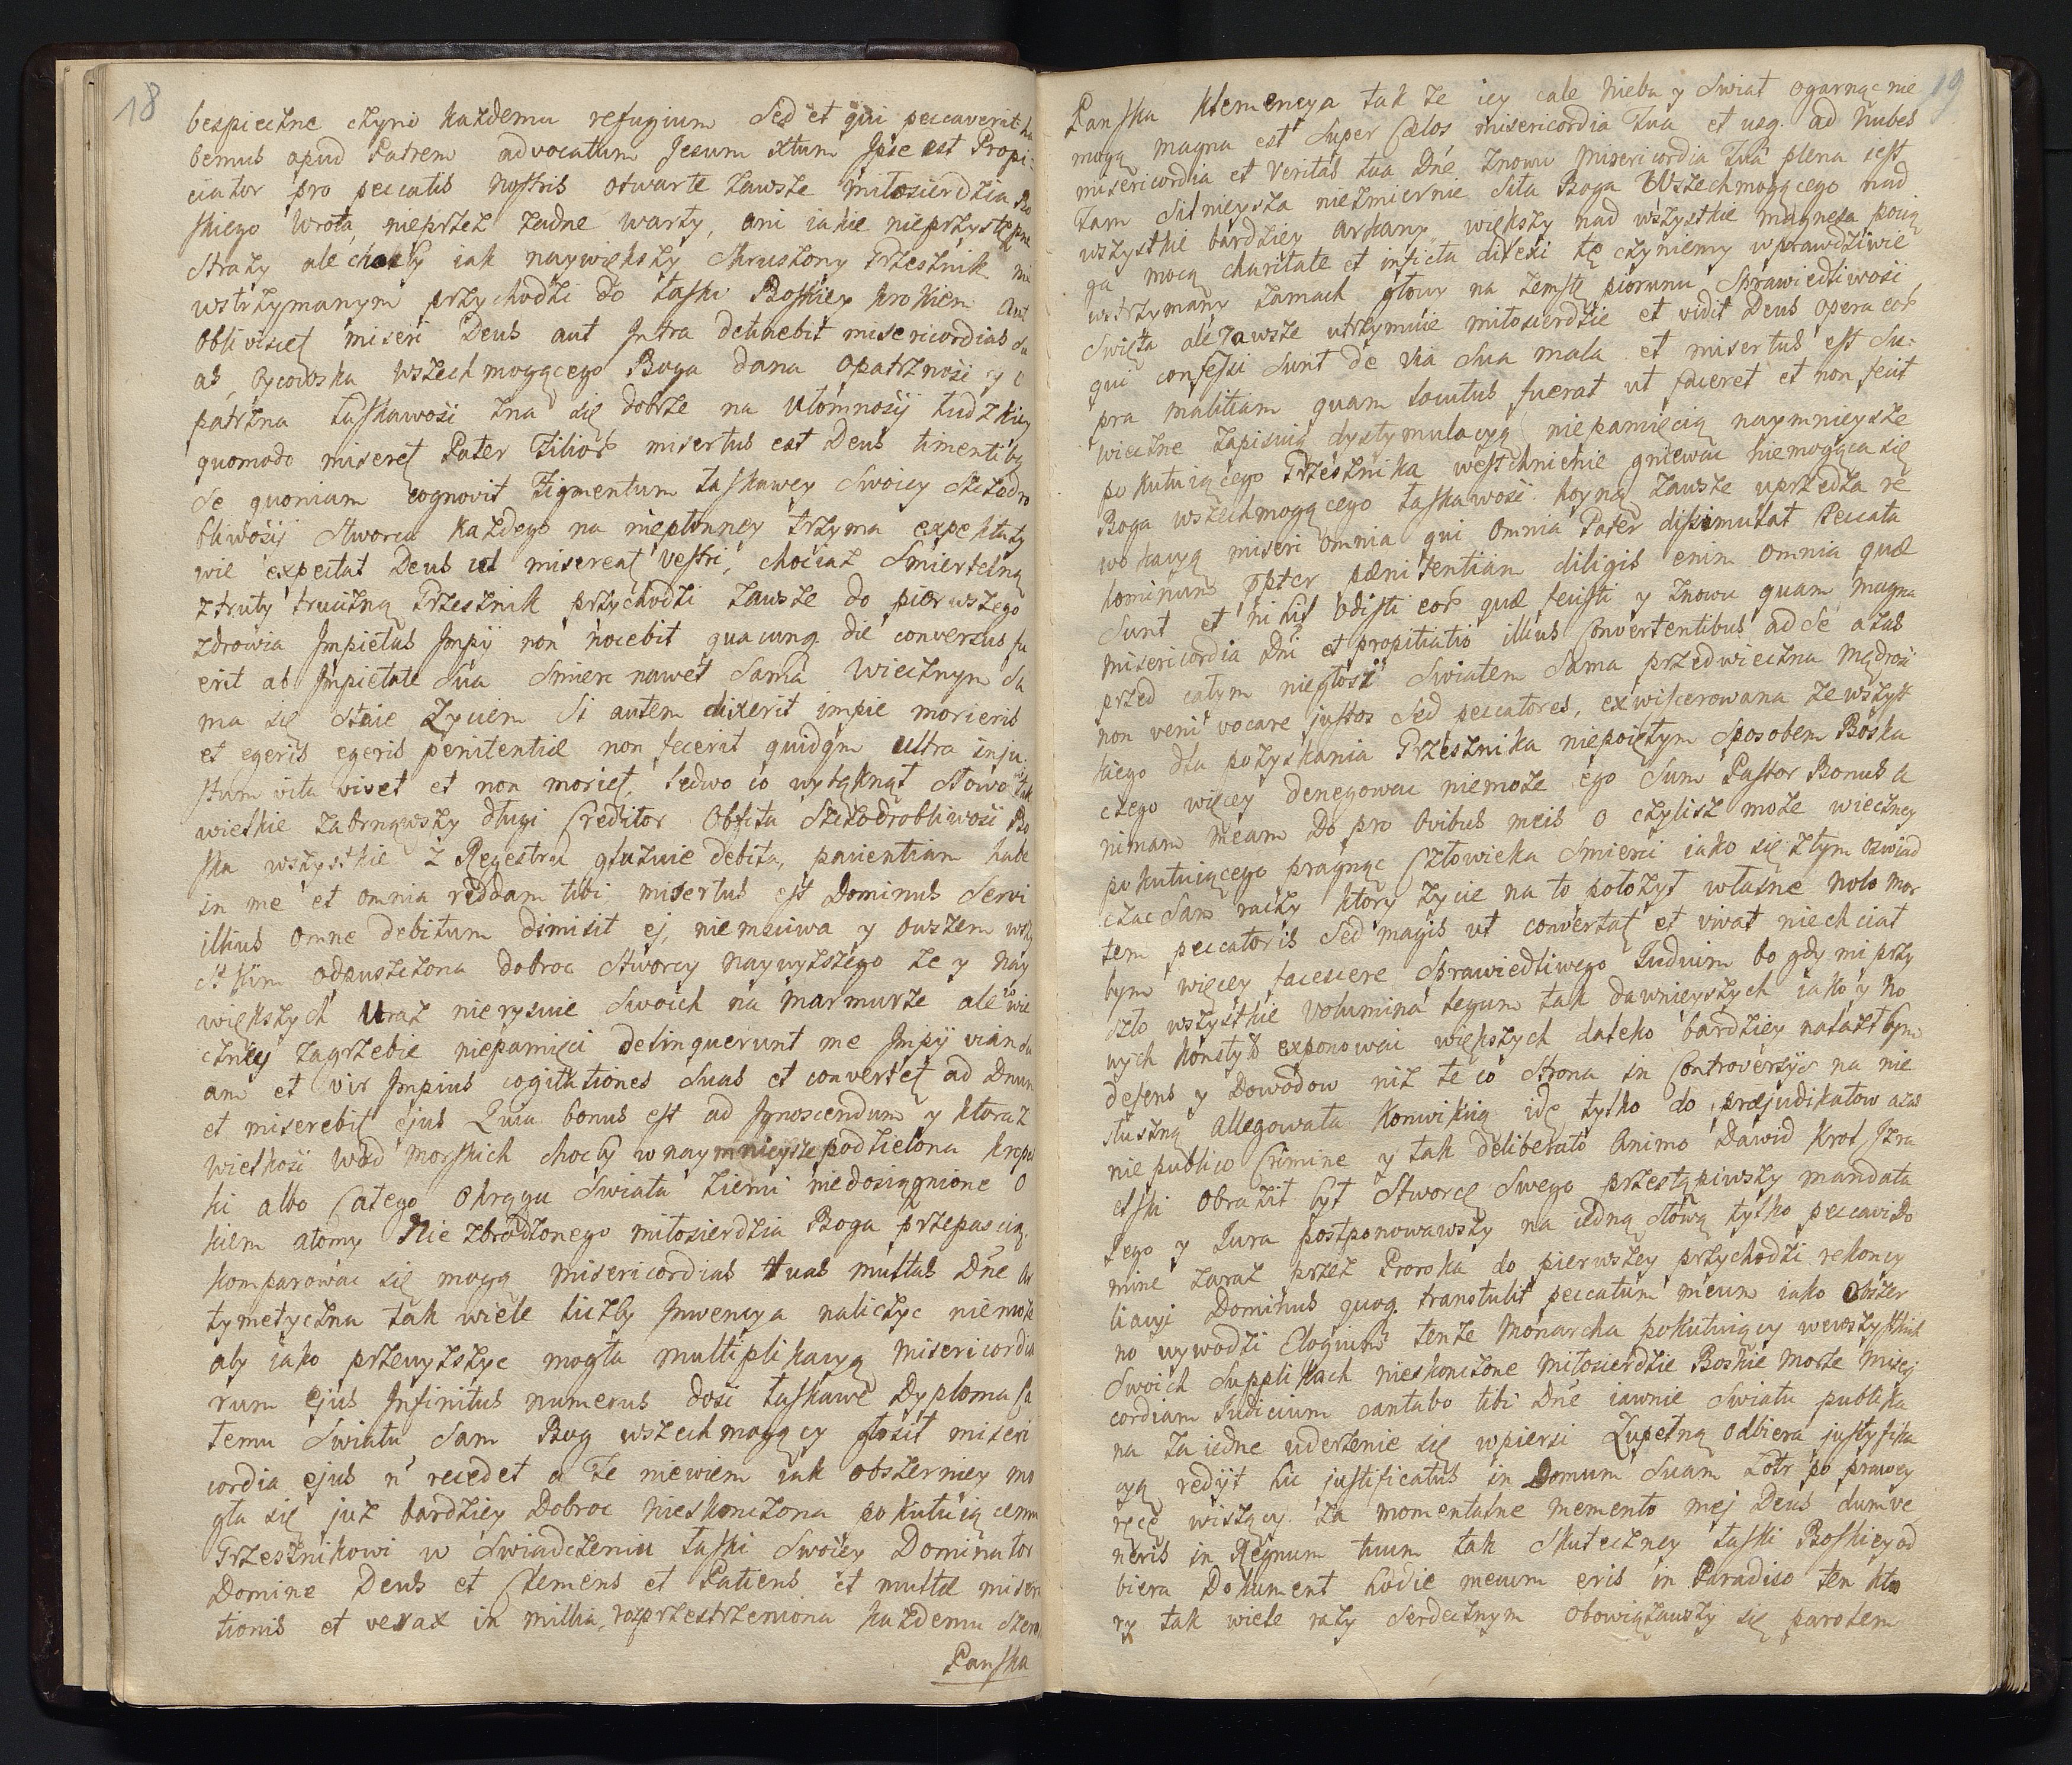 18
bespieczne czyni każdemu refugium Sed et qui peccaverit ha
bemus apud Patrem advocatum Jesum Xtum Ipse est Propi=
ciator pro peccatis nostris otwarte zawsze miłosierdzia Bo
skiego wrota, nieprzez żadne warty, ani iakie nieprzystępne
straży ale choćby iak naywiększy skruszony Grzesznik ni
wstrzymanym przychodzi do łaski Boskiey krokiem Aut
obliviscet misereri Deus aut Intra detinebit misericordias su
as, Oycowska Wszechmogącego Boga dana opatrzność y o
patrzna łaskawość zna się dobrze na ułomności ludzkiey
quomodo miseret Pater Filior misertus est Deus timentibq
se quoniam cognovit Figmentum łaskawey Swoiey szczodro
bliwości Stworca każdego na niepłonney trzyma expektaty
wie expectat Deus ut misereat vestri, chociaż Smiertelną
ztruty trucizną Grzesznik przychodzi zawsze do pierwszego
zdrowia Impietas Impij non nocebit quacunq die conversus fu
erit ab Impietate Sua Smierc nawet Sama Wiecznym Sa
ma się staie życiem Si autem dixerit impie morieris
et egeris egeris penitentiæ non fecerit quidqm ultra inju
stum vita vivet et non moriet, ledwo co wytchnął słowo tak
wielkie zabrnąwszy długi Creditor Obfita Szczodrobliwość Bo
ska wszystkie z Regestru glużuie debita, patientiam habe
in me et omnia reddam tibi, misertus est Dominus Servi
illius omne debitum dimisit ej, niemsciwa y owszem wszy
stkim odpuszczona dobroc Stworcy naywyższego że y nay
większych uraz nierysuie Swoich na marmurze ale w wie
czney zagrzebie niepamięci delinquerunt me Impij viam su
am et vir Impius cogitationes Suas et convertet ad Dnum
et miserebit ejus Quia bonus est ad Ignoscendum y ktoraż
wielkość wód morskich choćby w naymnieysze podzielona krop
ki albo Całego okręgu Świata ziemi niedosiągnione o
kiem atomy Nie zbrodzonego miłosierdzia Boga przepascią
komparowac się mogą misericordias tuas multas Dne Ar
tymetyczna tak wiele liczby Inwencya naliczyc niemoże
aby iako przewyższyc mogła multiplikacyą misericordia
rum ejus Infinitus numerus dosc łaskawe Dyploma Ca
łemu Światu Sam Bog wszechmogący głosił miseri
cordia ejus n recedet a że niewiem iak obszerniey mo
gła się już bardziey Dobroc nieskonczona pokutuiącemu
Grzesznikowi w Swiadczeniu łaski Swoiey Dominator
Domine Deus et Clemens et Patiens et multæ misera
tionis et verax in millia, rozprzestrzeniona każdemu szero
Panska
19
Panska klemencya tak że iey całe nieba y Swiat ogarnąc nie
mogą magna est Super Cælos misericordia tua et usq. ad nubes
misericordia et Veritas tua Dne znowu misericordia tua plena est
Tam Silnieysza niezmiernie Siła Boga Wszechmogącego nad
wszystkie bardziey arkany większy nad wszystkie magnesa pocią
ga mocą charitate et invicta dilexi tę czyniemy wprawdziwie
wstrzymany zamach głowy na zemstę piorunu Sprawiedliwość
Swięta ale zawsze utrzymuie miłosierdzie et vidit Deus opera eor
qui confessi Sunt de via Sua mala et misertus est Su=
pra malitiam quam locutus fuerat ut faceret et non fecit
wieczne zapisuią dyssymulacyą niepamięcią naymnieysze
pokutuiącego Grzesznika westchnienie gniewac niemogąca się
Boga wszechmogącego łaskawość hoyną zawsze uprzedza re
wokacyą misereri omnia qui omnia Pater dissimulat Peccata
hominum ppter pænitentiam diligis enim omnia quæ
Sunt et nihil odisti eor quæ fecisti y znowu quam magna
misericordia Dni et propitiatio illius Convertentibus ad Se a zas
przed całym niegłosi Swiatem Sama przedwieczna mądrość
non veni vocare justos Sed peccatores, exwiscerowana ze wszyst
kiego dla pozyskania Grzesznika niepoiętym Sposobem Boska
czego więcey denegowac niemoże ego Sum Pastor Bonus a
nimam meam do pro ovibus meis o czylisz może wieczney
pokutuiącego pragnąc Człowieka Smierci iako się ztym oswiad
czac Sam raczy ktory życie na to położył własne nolo mor
tem peccatoris Sed magis ut convertat et vivat niechciał
bym więcey facescere Sprawiedliwego Iudicium bo gdy mi przy
szło wszystkie volumina legum tak dawnieyszych iako y no
wych konstyt exponowac większych daleko bardziey nalazłbym
defens y Dowodow niż te co Strona in Controversijs na nie
słuszną allegowała konwikcią idę tylko do præjudikatow azaż
nie publico Crimine y tak deliberato Animo Dawid Krol Izra
elski obraził był Stworcę Swego przestąpiwszy mandata
Iego y Jura postponowawszy na iedną słowo tylko peccavi Do
mine zaraz przez Proroka do pierwszey przychodzi rekoncy
liacyi Dominus quoq. transtulit peccatum meum iako obszer
no wywodzi Elogium tenże Monarcha pokutuiący wewszystkich
Swoich Supplikach nieskonczone miłosierdzie Boskie może miseri
cordiam Iudicium cantabo tibi Dne iawnie Swiatu publika
na za iedne uderzenie się wpiersi Zupełną odbiera justyfika
cyą redijt hic justificatus in Domum Suam Łotr po prawey
ręce wiszący za momentalne memento mej Deus dum ve
neris in Regnum tuum tak Skuteczney łaski Boskiey od
biera Dokument hodie mecum eris in Paradiso ten kto
ry tak wiele razy Serdecznym obowiązawszy się parolem